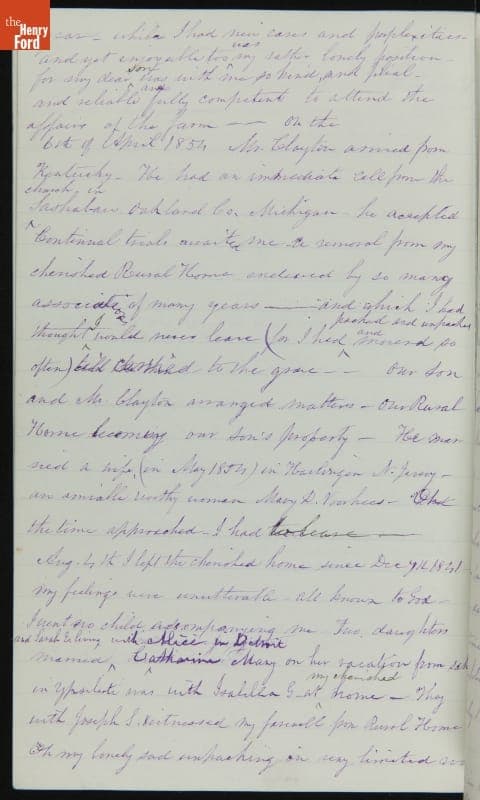 the
Henry
Ford
while I had new cares and perplexities
and yet enjoyable too was my rather lonely position
for my dear son was with me so kind, and
and reliable and fully competent to attend the
affairs of the farm — — On the
6th of April 1854 Mr. Clayton arrived from
Kentucky — He had an immediate call from the
church in
Sashabaw Oakland Co. Michigan — he accepted
Continual trials await me — a removal from my
cherished Rural Home endeared by so many
association of many years — and which I had
thought I would never leave (for I had packed and unpacked and moved so
often) till carried to the grave — — Our son
and Mr. Clayton arranged matters — Our Rural
Home becoming our son's property — He mar
ried a wife, (in May 1854) in Harlingen N. Jersey —
an amiable worthy woman Mary D. Voorhees —
the time approached — I had to leave —
Aug. 4th I left the cherished home since Dec 9th 1841 —
my feelings were unutterable — all known to God —
I went no child accompanying me — Two daughters
and Sarah with Alice in Detroit
married, Catharine Mary on her vacation from
in Ypsilanti was with Isabella G — at my cherished home — They
with Joseph S. witnessed my farewell from Rural Home
Oh my lonely sad unpacking in very limited